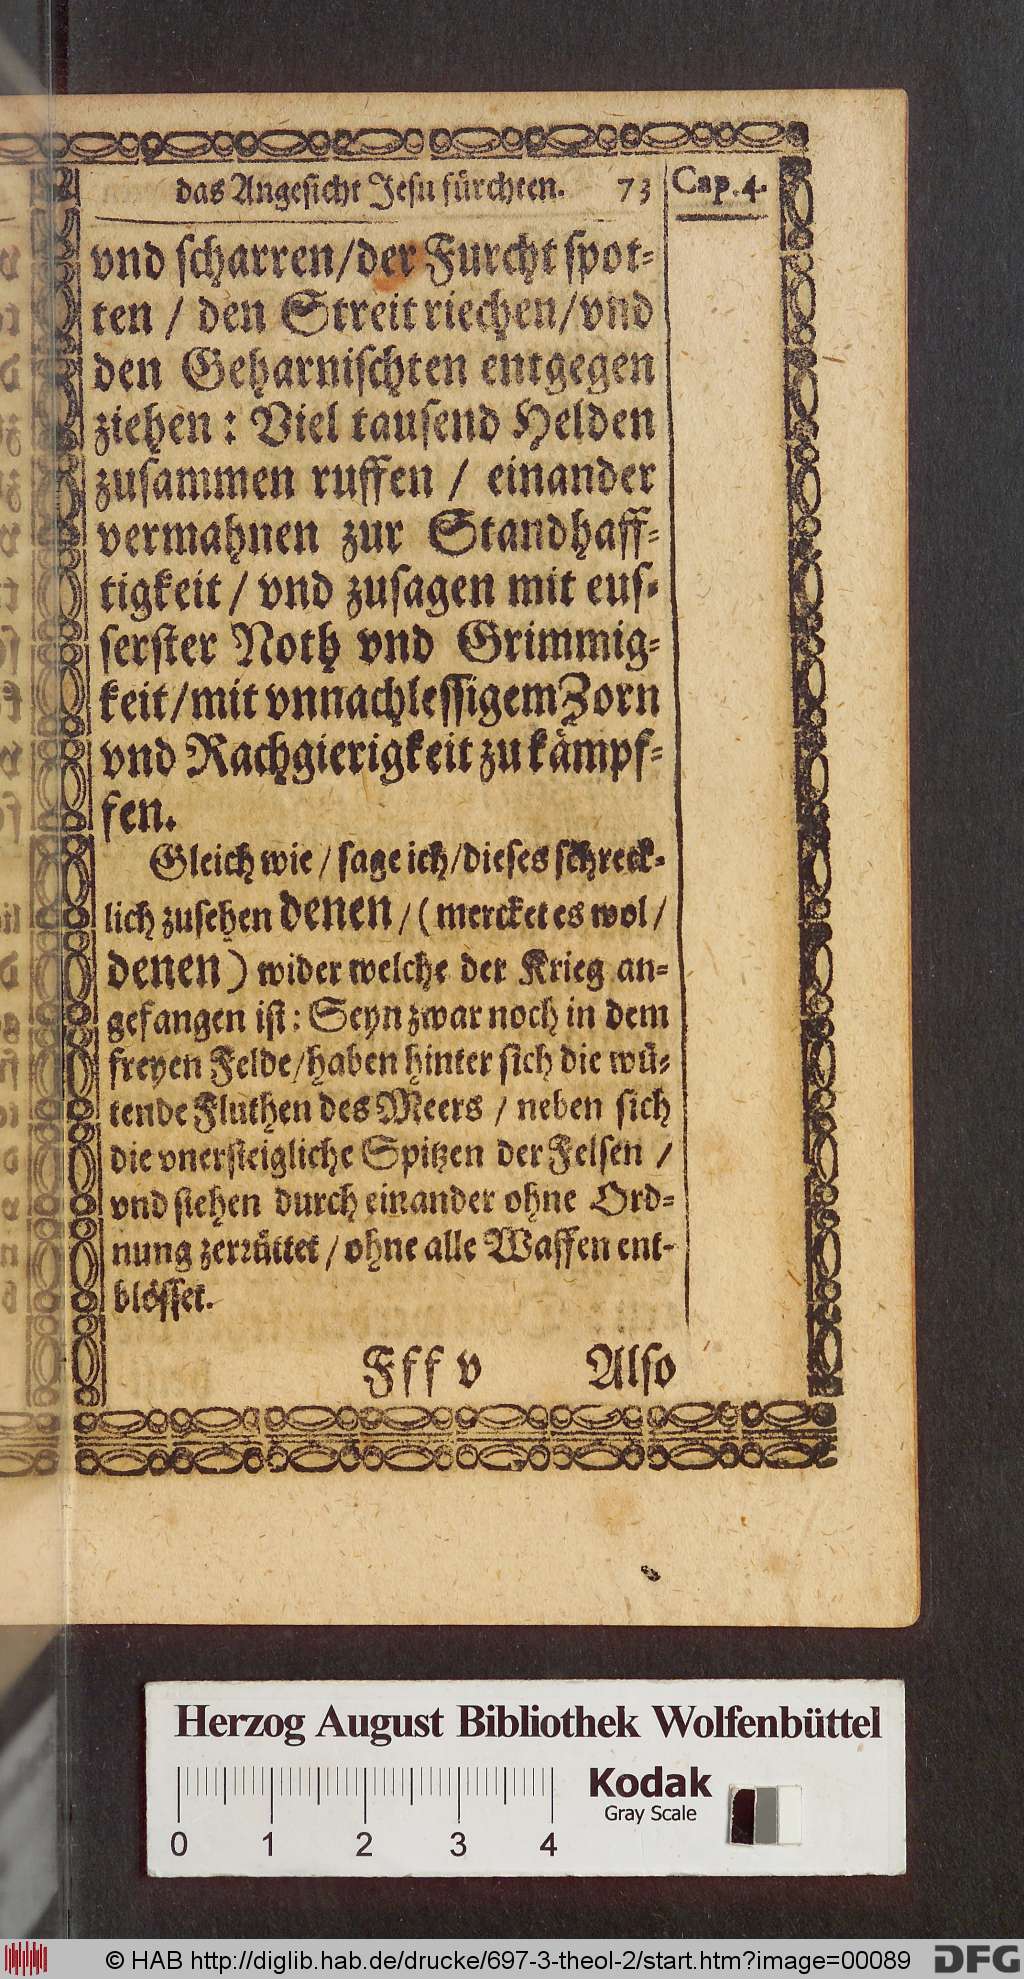 das Angesicht Jesu fürchten. 73 Cap. 4.
vnd scharren/der Furcht spot-
ten / den Streit riechen/vnd
den Geharnischten entgegen
ziehen: Viel tausend Helden
zusammen ruffen / einander
vermahnen zur Standhaff-
tigkeit / vnd zusagen mit eus-
serster Noth vnd Grimmig-
keit/mit vnnachlessigem Zorn
vnd Rachgierigkeit zu kämpf-
fen.
Gleich wie / sage ich/dieses schreck-
lich zusehen denen / ( mercket es wol /
denen ) wider welche der Krieg an-
gefangen ist: Seyn zwar noch in dem
freyen Felde/haben hinter sich die wü-
tende Fluthen des Meers / neben sich
die vnersteigliche Spitzen der Felsen /
vnd stehen durch einander ohne Ord-
nung zerrüttet / ohne alle Waffen ent-
blösset.
Fff v Also
Herzog August Bibliothek Wolfenbüttel
Kodak
Gray Scale
0 1 2 3 4
© HAB http://diglib.hab.de/drucke/697-3-theol-2/start.htm?image=00089 DFG